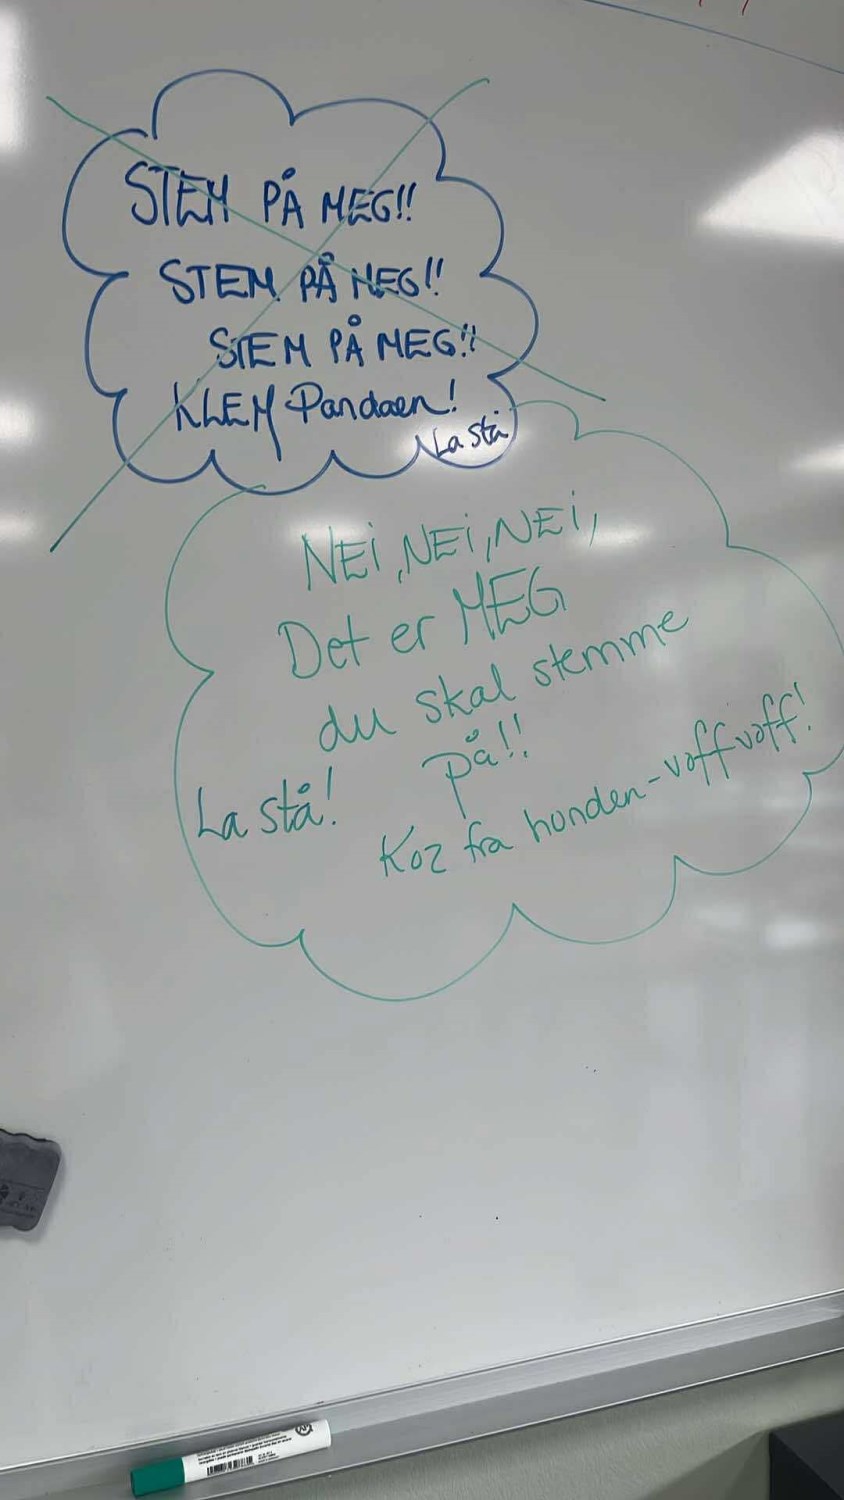 STEM PÅ MEG!!
STEM PÅ MEG!!
STEM PÅ MEG!!
KLEM Pandaen!
La stå
NEi, NEi, NEi,
Det er MEG
du skal stemme
på!!
La stå!
Koz fra hunden-voff voff!